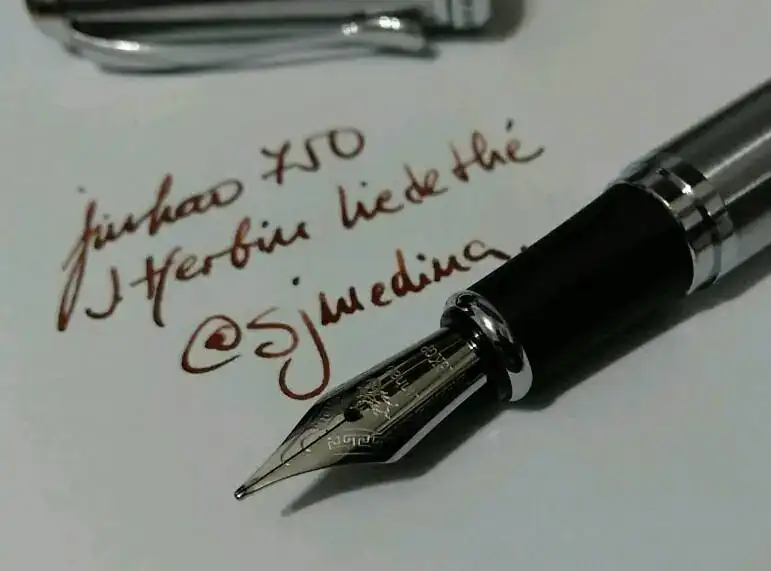 jinhao 750
J Herbin lie de thé
@sjmedina.
18KGP